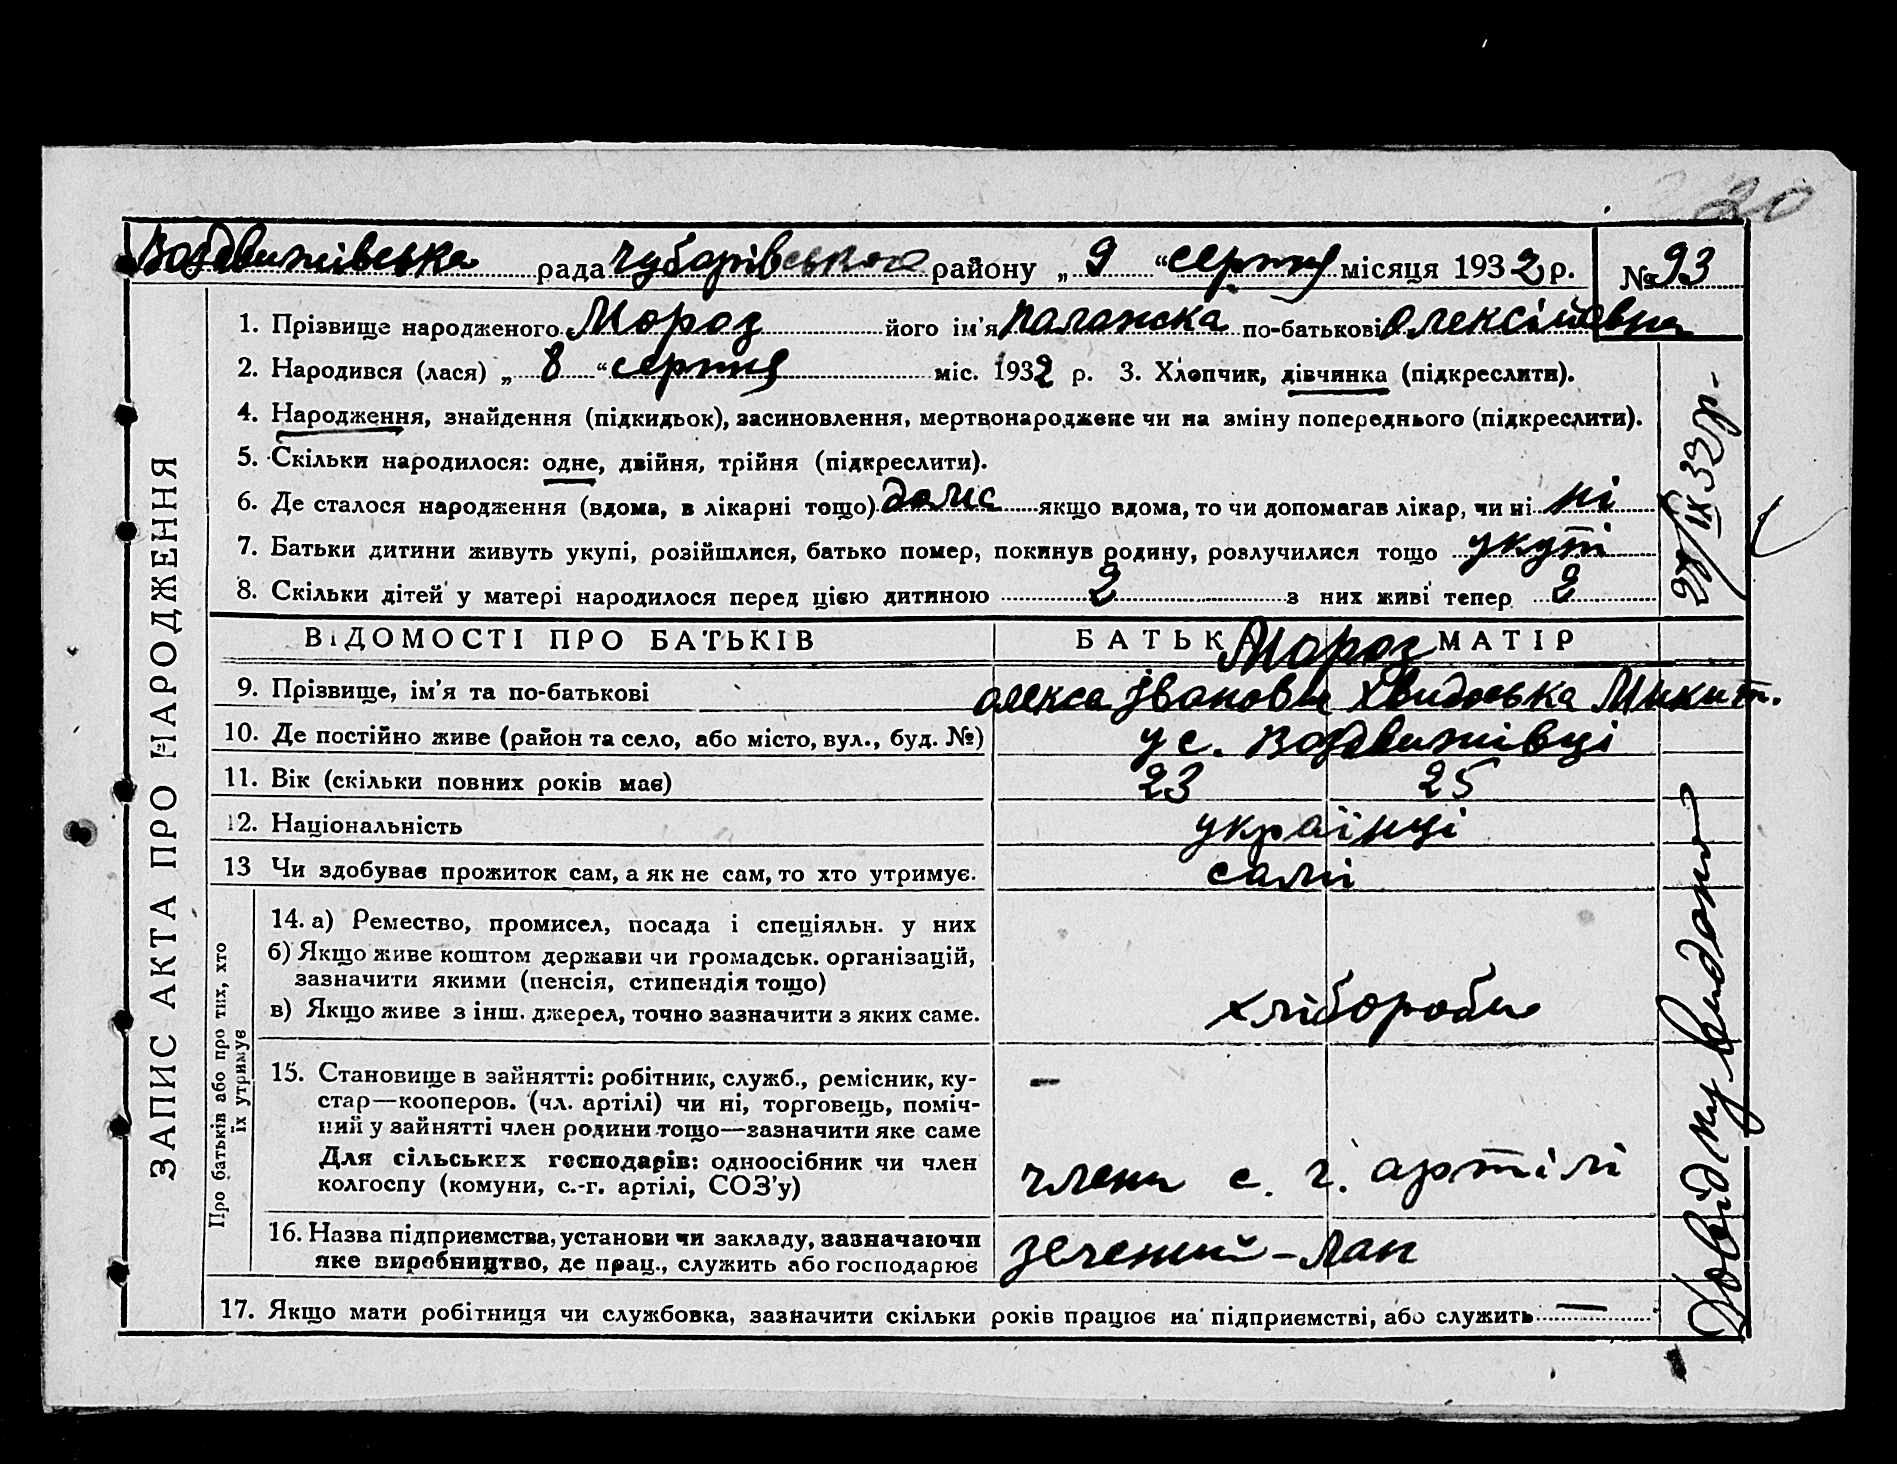 20
Воздвижівська рада Чубарівського району „ 9 “ серпня місяця 1932 р. № 93
1. Прізвище народженого Мороз його ім'я Палажка по-батькові Олексіївна
2. Народився (лася) „ 8 “ серпня міс. 1932 р. 3. Хлопчик, дівчинка (підкреслити).
4. Народження, знайдення (підкидьок), засиновлення, мертвонароджене чи на зміну попереднього (підкреслити).
5. Скільки народилося: одне, двійня, трійня (підкреслити).
6. Де сталося народження (вдома, в лікарні тощо) дома якщо вдома, то чи допомагав лікар, чи ні ні
7. Батьки дитини живуть укупі, розійшлися, батько помер, покинув родину, розлучилися тощо укупі
8. Скільки дітей у матері народилося перед цією дитиною 2 з них живі тепер 2
ВІДОМОСТІ ПРО БАТЬКІВ БАТЬК Мороз МАТІР
9. Прізвище, ім'я та по-батькові Олекса Іванови Хвидоська Микит.
10. Де постійно живе (район та село, або місто, вул., буд. №) у с. Воздвижівці
11. Вік (скільки повних років має) 23 25
12. Національність українці
13 Чи здобуває прожиток сам, а як не сам, то хто утримує. самі
14. а) Ремество, промисел, посада і спеціяльн. у них
б) Якщо живе коштом держави чи громадськ. організацій,
зазначити якими (пенсія, стипендія тощо)
в) Якщо живе з інш. джерел, точно зазначити з яких саме. хлібороби
15. Становище в зайнятті: робітник, служб., ремісник, ку- –
стар—кооперов. (чл. артілі) чи ні, торговець, поміч-
ний у зайнятті член родини тощо—зазначити яке саме
Для сільських господарів: одноосібник чи член
колгоспу (комуни, с.-г. артілі, СОЗ'у) члени с. г. артілі
16. Назва підприємства, установи чи закладу, зазначаючи
яке виробництво, де прац., служить або господарює зелений-лан
17. Якщо мати робітниця чи службовка, зазначити скільки років працює на підприємстві, або служить —
ЗАПИС АКТА ПРО НАРОДЖЕННЯ
Про батьків або про тих, хто
їх утримує
Довідку видано
IX 32 р.